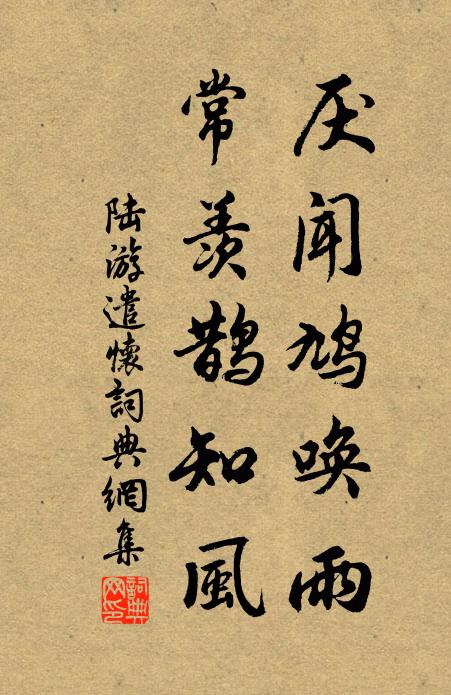 厌闻鸠唤雨
常羡鹊知风
陆游遣懷詞典網集
詞典網印